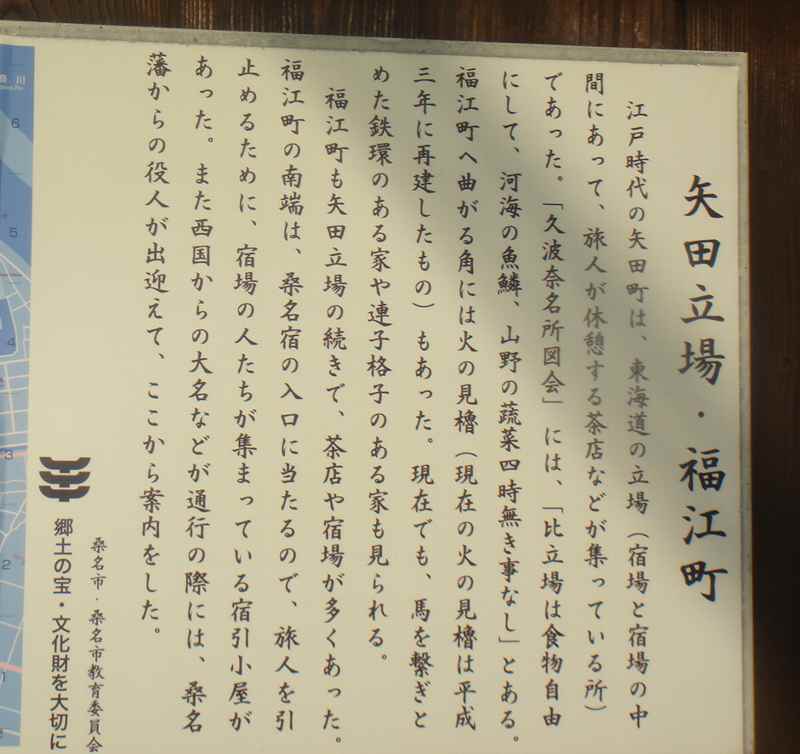 矢田立場・福江町
江戸時代の矢田町は、東海道の立場（宿場と宿場の中
間にあって、旅人が休憩する茶店などが集っている所）
であった。「久波奈名所図会」には、「比立場は食物自由
にして、河海の魚鱗、山野の蔬菜四時無き事なし」とある。
福江町へ曲がる角には火の見櫓（現在の火の見櫓は平成
三年に再建したもの）もあった。現在でも、馬を繋ぎと
めた鉄環のある家や連子格子のある家も見られる。
福江町も矢田立場の続きで、茶店や宿場が多くあった。
福江町の南端は、桑名宿の入口に当たるので、旅人を引
止めるために、宿場の人たちが集まっている宿引小屋が
あった。また西国からの大名などが通行の際には、桑名
藩からの役人が出迎えて、ここから案内をした。
桑名市・桑名市教育委員会
郷土の宝・文化財を大切に
川
6
5
4
3
2
1